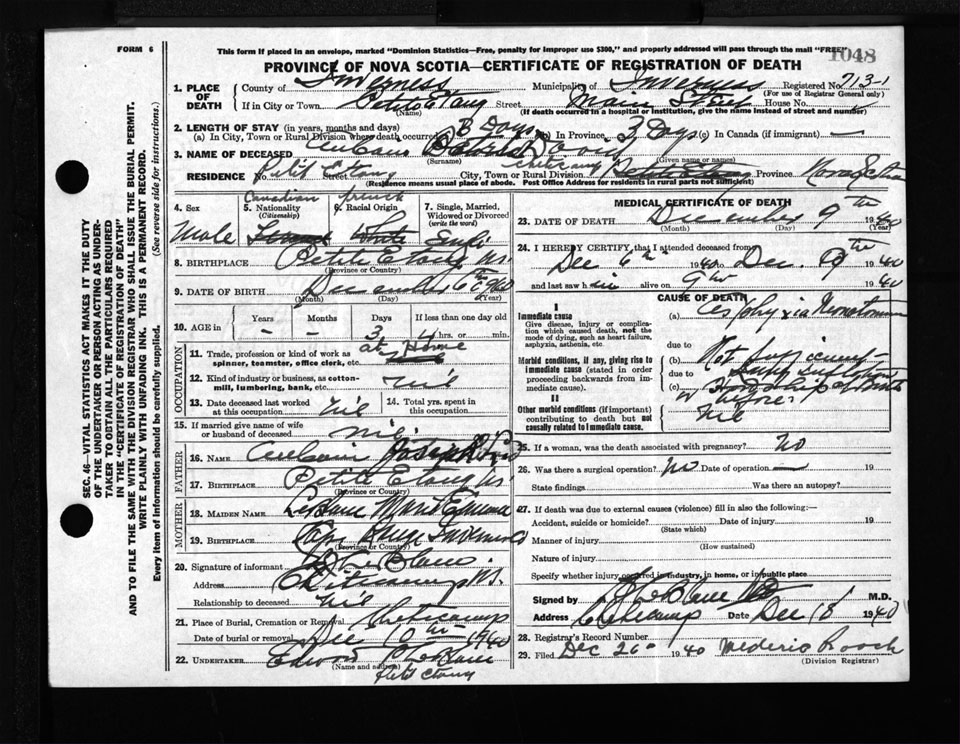 FORM 6
This form if placed in an envelope, marked "Dominion Statistics—Free, penalty for improper use $300," and properly addressed will pass through the mail "FREE"
1048
PROVINCE OF NOVA SCOTIA—CERTIFICATE OF REGISTRATION OF DEATH
1. PLACE OF DEATH
County of Inverness Municipality of Inverness Registered No. 713-1
(For use of Registrar General only)
If in City or Town Street Main Street House No.
(Name) (If death occurred in a hospital or institution, give the name instead of street and number)
2. LENGTH OF STAY (in years, months and days)
(a) In City, Town or Rural Division where death occurred 3 Days (b) In Province 3 Days (c) In Canada (if immigrant) —
3. NAME OF DECEASED
(Surname) (Given name or names)
RESIDENCE Petit Etang Street City, Town or Rural Division Cheticamp Province Nova Scotia
(Residence means usual place of abode. Post Office Address for residents in rural parts not sufficient)
4. Sex Male
5. Nationality (Citizenship) Canadian
6. Racial Origin French White
7. Single, Married, Widowed or Divorced (write the word) Single
8. BIRTHPLACE Petite Etang N.S.
(Province or Country)
9. DATE OF BIRTH December 6th 1940
(Month) (Day) (Year)
10. AGE in Years Months Days If less than one day
– – 3 4 hrs. or min.
OCCUPATION
11. Trade, profession or kind of work as spinner, teamster, office clerk, etc. at Home
12. Kind of industry or business, as cotton-mill, lumbering, bank, etc. nil
13. Date deceased last worked at this occupation nil
14. Total yrs. spent in this occupation
15. If married give name of wife or husband of deceased nil
FATHER
16. NAME Joseph
17. BIRTHPLACE Petite Etang N.S.
(Province or Country)
MOTHER
18. MAIDEN NAME LeBlanc
19. BIRTHPLACE Inverness
(Province or Country)
20. Signature of informant LeBlanc
Address Cheticamp N.S.
Relationship to deceased nil
21. Place of Burial, Cremation or Removal Cheticamp
Date of burial or removal Dec 10th 1940
22. UNDERTAKER LeBlanc
(Name and address)
Petit Etang
MEDICAL CERTIFICATE OF DEATH
23. DATE OF DEATH December 9th 1940
(Month) (Day) (Year)
24. I HEREBY CERTIFY that I attended deceased from
Dec 6th 1940 to Dec. 9th 1940
and last saw him alive on 9th 1940
CAUSE OF DEATH
I
Immediate cause
Give disease, injury or complication which caused death, not the mode of dying, such as heart failure, asphyxia, asthenia, etc.
(a) Asphyxia Neonatorum
due to
Morbid conditions, if any, giving rise to immediate cause (stated in order proceeding backwards from immediate cause).
(b) Not
due to
(c)
II
Other morbid conditions (if important) contributing to death but not causally related to immediate cause.
Nil
25. If a woman, was the death associated with pregnancy? No
26. Was there a surgical operation? No Date of operation — 19
State findings Was there an autopsy?
27. If death was due to external causes (violence) fill in also the following:—
Accident, suicide or homicide? Date of injury 19
(State which)
Manner of injury
(How sustained)
Nature of injury
Specify whether injury occurred in industry, in home, or in public place
Signed by LeBlanc MD M.D.
Address Cheticamp Date Dec 18 1940
28. Registrar's Record Number
29. Filed Dec 26 1940
(Division Registrar)
SEC. 46—VITAL STATISTICS ACT MAKES IT THE DUTY
OF THE UNDERTAKER OR PERSON ACTING AS UNDER-
TAKER TO OBTAIN ALL THE PARTICULARS REQUIRED
IN THE "CERTIFICATE OF REGISTRATION OF DEATH"
AND TO FILE THE SAME WITH THE DIVISION REGISTRAR WHO SHALL ISSUE THE BURIAL PERMIT.
WRITE PLAINLY WITH UNFADING INK. THIS IS A PERMANENT RECORD.
Every item of Information should be carefully supplied. (See reverse side for instructions.)